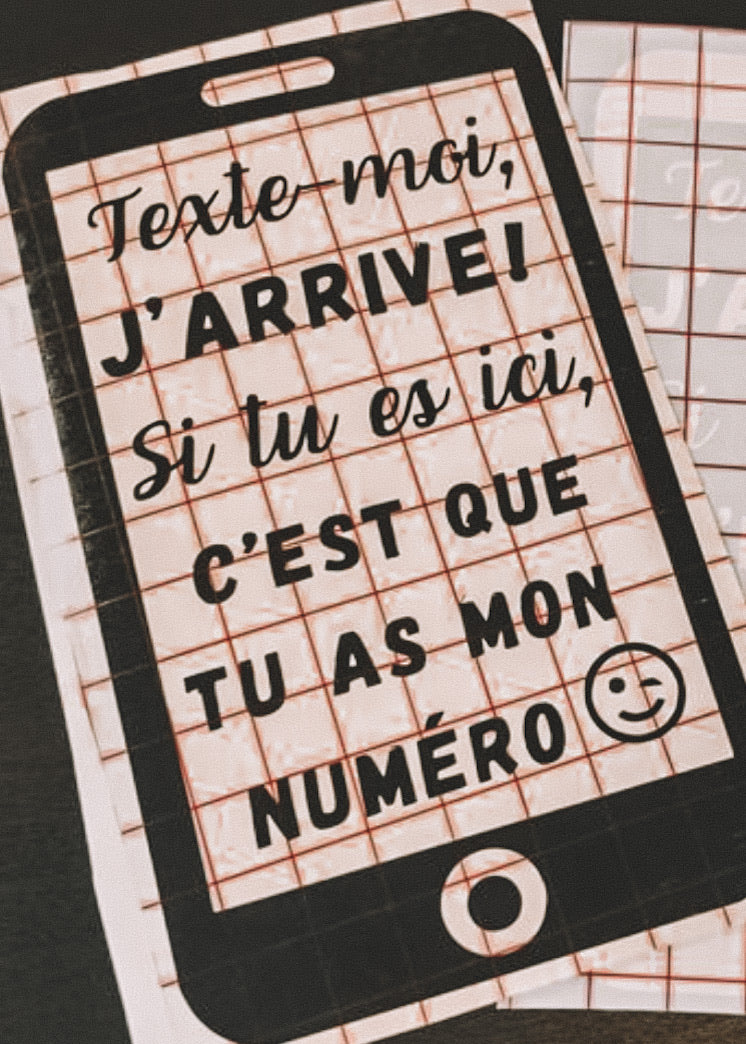 Texte-moi,
J'ARRIVE!
Si tu es ici,
C'EST QUE
TU AS MON
NUMÉRO